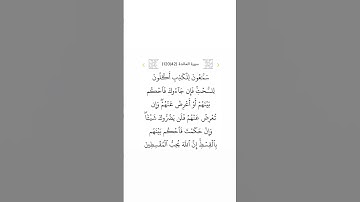 سورة المائدة (42\120)
سَمَّٰعُونَ لِلْكَذِبِ أَكَّٰلُونَ
لِلسُّحْتِ ۚ فَإِن جَآءُوكَ فَٱحْكُم
بَيْنَهُمْ أَوْ أَعْرِضْ عَنْهُمْ ۖ وَإِن
تُعْرِضْ عَنْهُمْ فَلَن يَضُرُّوكَ شَيْـًٔا ۖ
وَإِنْ حَكَمْتَ فَٱحْكُم بَيْنَهُم
بِٱلْقِسْطِ ۚ إِنَّ ٱللَّهَ يُحِبُّ ٱلْمُقْسِطِينَ